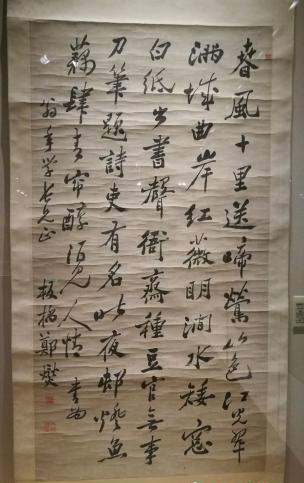 春風十里送啼鶯山色江光翠
滿城曲岸紅薇明澗水矮窓
白紙出書聲衙齋種豆官無事
刀筆題詩吏有名昨夜邨燈魚
藕肆青帘醇酒見人情 書為
翁年學老長兄正 板橋鄭燮